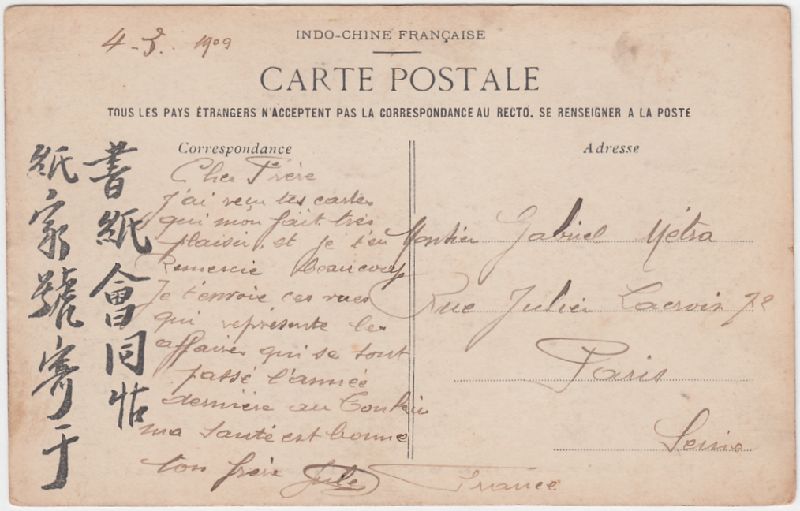 4-3. 1909
INDO-CHINE FRANÇAISE
CARTE POSTALE
TOUS LES PAYS ÉTRANGERS N'ACCEPTENT PAS LA CORRESPONDANCE AU RECTO. SE RENSEIGNER A LA POSTE
Correspondance
Cher Frère
J'ai reçu tes cartes
qui mon fait très
plaisir et je t'en
Remercie beaucoup
Je t'envoie ces vues
qui représente les
affaires qui se sont
passé l'année
dernière au Tonkin
ma santé est bonne
ton frère Jule
Adresse
Gabriel Métra
Rue Julien Lacroix 72
Paris
Seine
France
書紙會同
紙家號寄于